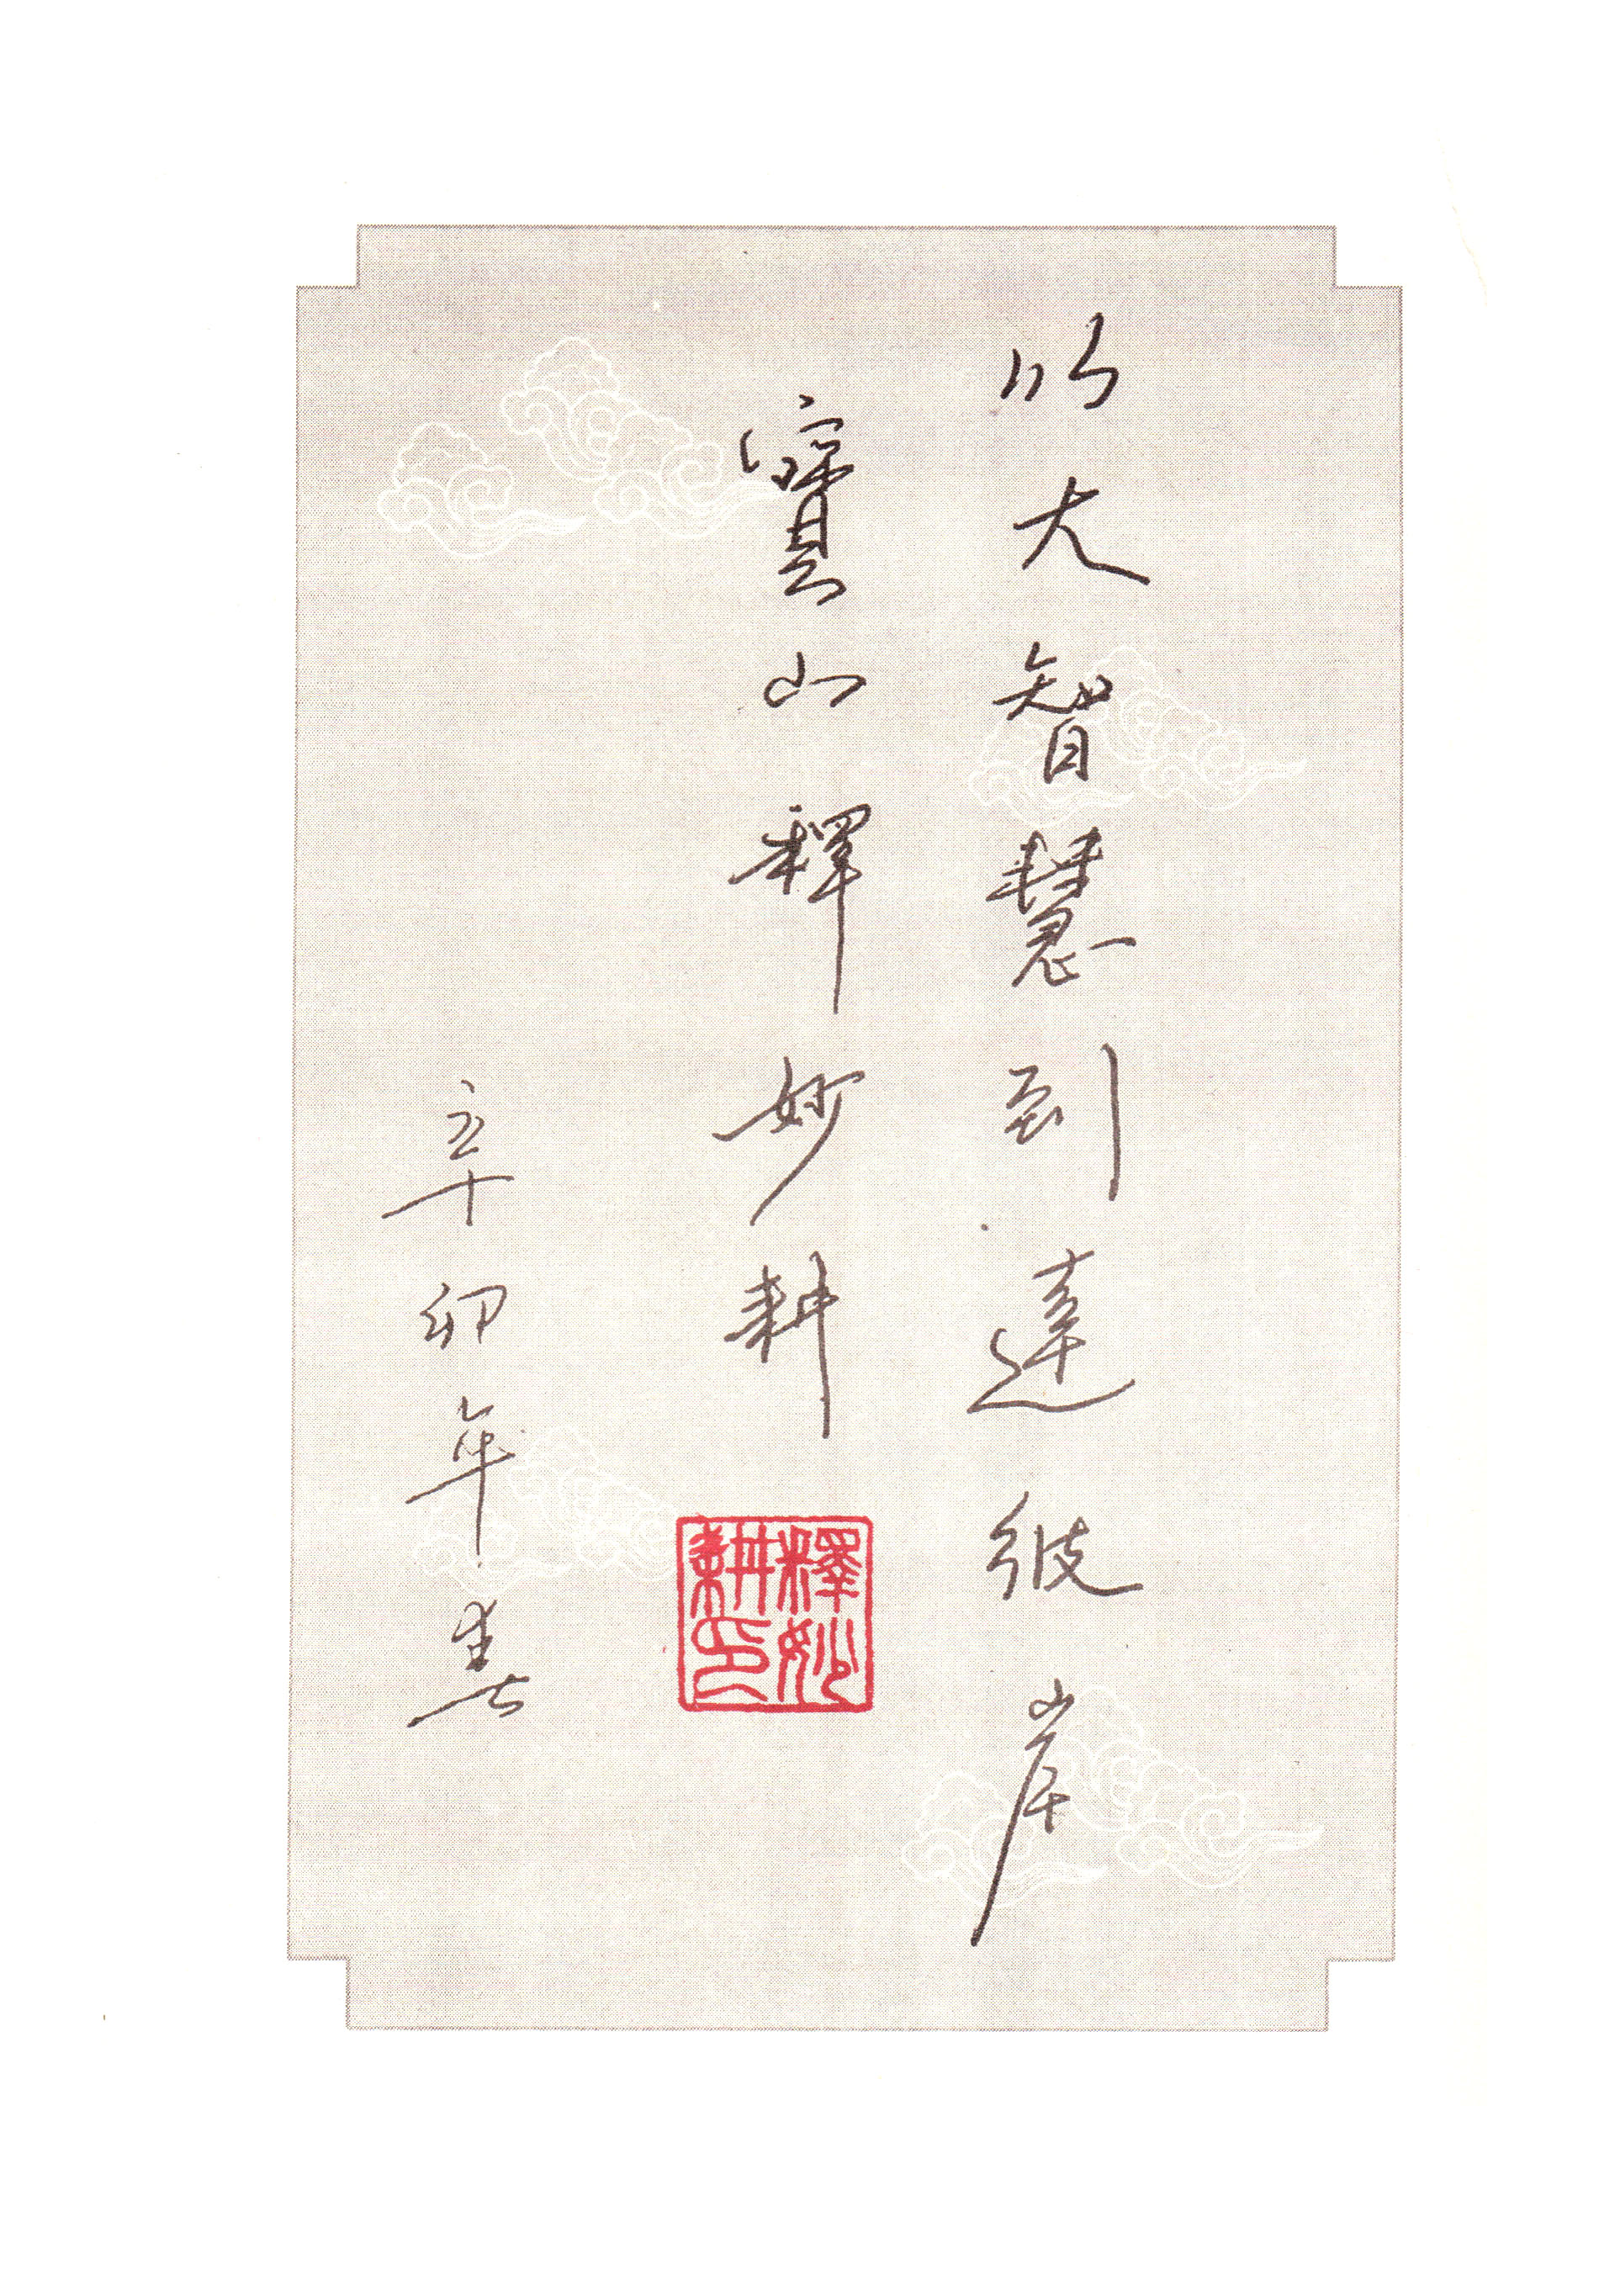 以大智慧到達彼岸
寶山釋妙耕
釋妙耕印
辛卯年春